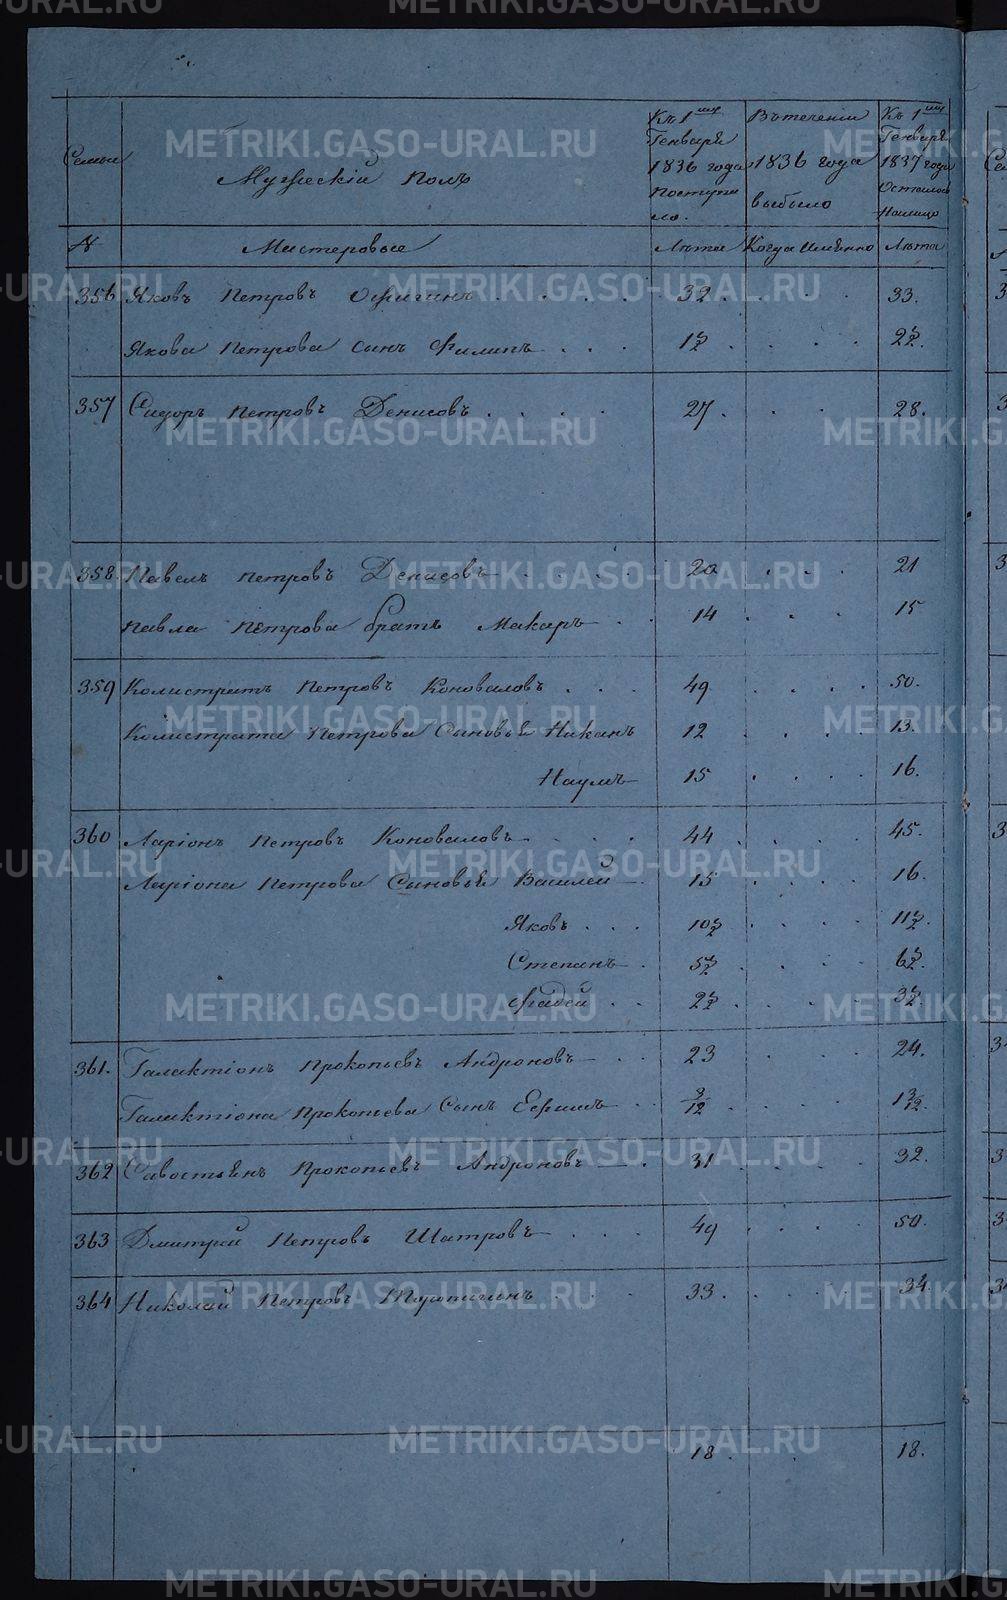 Семьи
Мужескій полъ
Къ 1му Генваря 1836 года поступило.
Въ теченіи 1836 года выбыло
Къ 1му Генваря 1837 года Осталось На лицо
№ Мастеровые Лѣта Когда именно Лѣта
356 Яковъ Петровъ 32. 33.
Якова Петрова сынъ Филипъ 1½ 2½.
357 Сидоръ Петровъ Денисовъ 27. 28.
358. Павелъ Петровъ Денисовъ 20 21
Павла Петрова братъ Макаръ 14 15
359 Калистратъ Петровъ Коноваловъ 49 50.
Калистрата Петрова Сыновья Никанъ 12 13.
Наумъ 15 16.
360 Ларіонъ Петровъ Коноваловъ 44 45.
Ларіона Петрова Сыновья Василей 15 16.
Яковъ 10½ 11½.
Степанъ 5½ 6½.
Фадей 2½ 3½.
361. Галактіонъ Прокопьевъ Андроновъ 23 24.
Галактіона Прокопьева Сынъ Ефимъ 3/12 1 3/12.
362 Савостьянъ Прокопьевъ Андроновъ 31 32.
363 Дмитрей Петровъ Шатровъ 49 50.
364 Николай Петровъ 33. 34.
18. 18.
METRIKI.GASO-URAL.RU